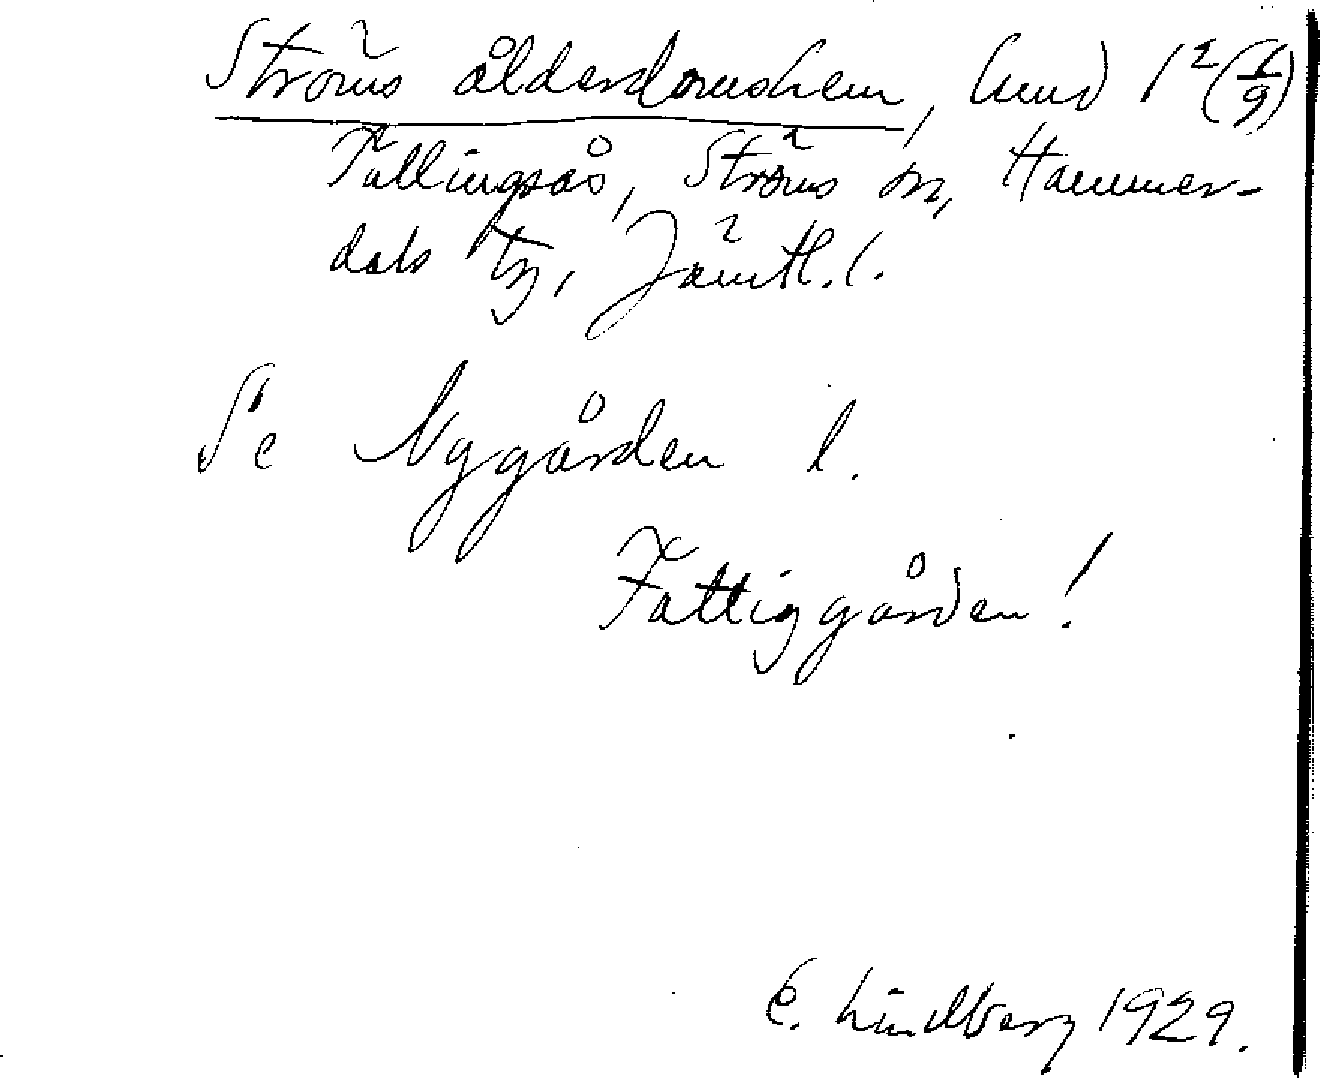 Ströms ålderdomshem, hmd 1² (1/9)
Tullingsås, Ströms sn, Hammer-
dals tg, Jämtl. l.
Se Nygården l.
Fattiggården!
E. Lindberg 1929.